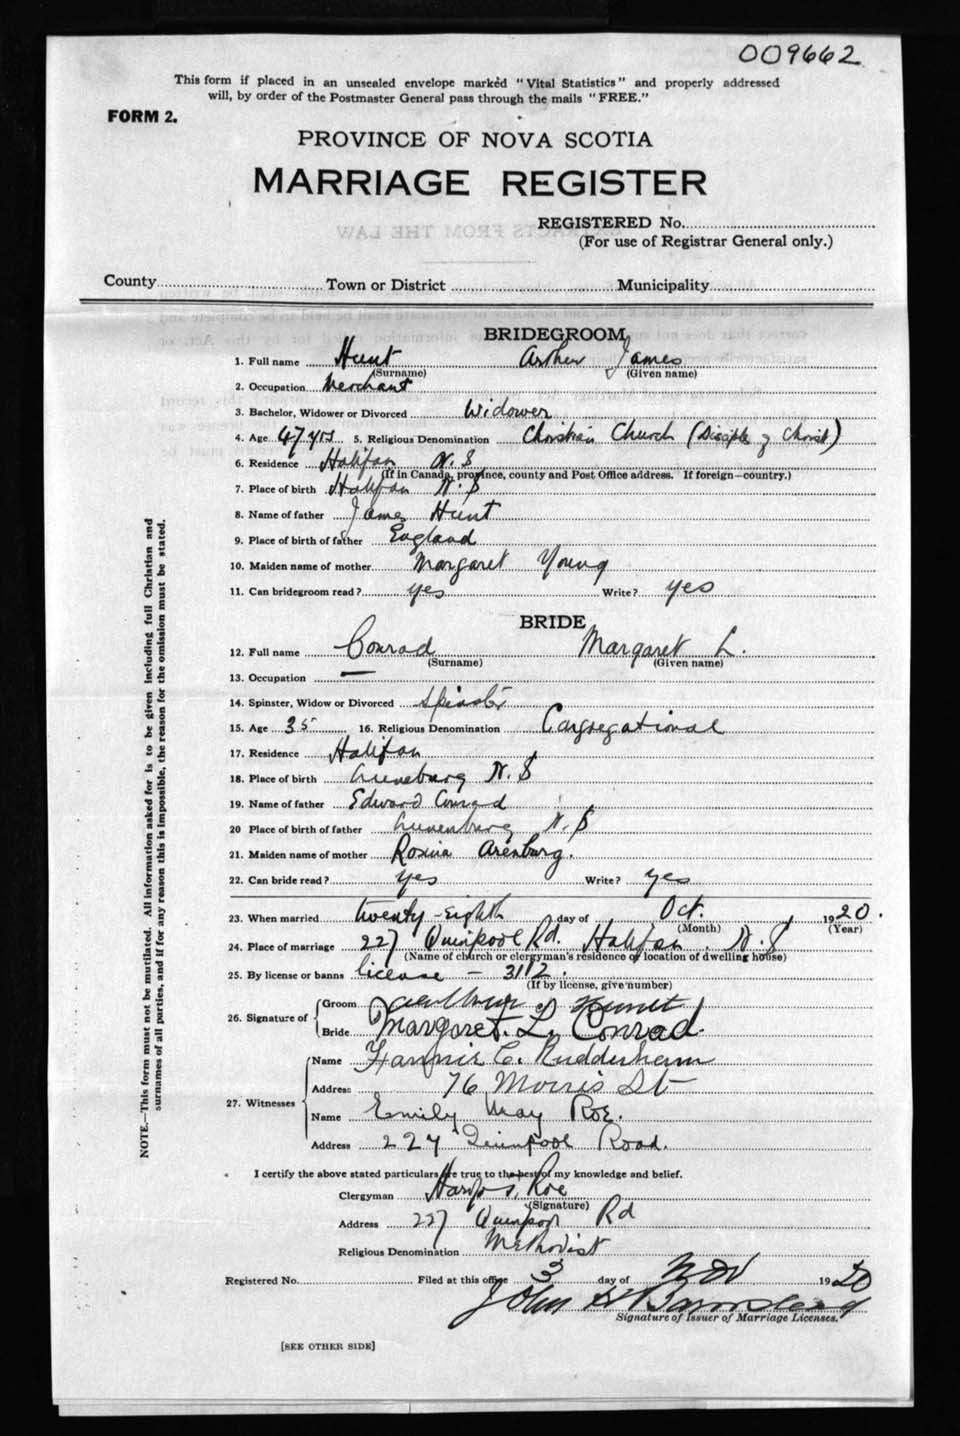 009662
This form if placed in an unsealed envelope marked "Vital Statistics" and properly addressed
will, by order of the Postmaster General pass through the mails "FREE."
FORM 2.
PROVINCE OF NOVA SCOTIA
MARRIAGE REGISTER
REGISTERED No.
(For use of Registrar General only.)
County Town or District Municipality
BRIDEGROOM
1. Full name Hunt Arthur James
(Surname) (Given name)
2. Occupation Merchant
3. Bachelor, Widower or Divorced Widower
4. Age 47 yrs 5. Religious Denomination Christian Church (Disciple of Christ)
6. Residence Halifax N.S
(If in Canada, province, county and Post Office address. If foreign—country.)
7. Place of birth Halifax N.S
8. Name of father James Hunt
9. Place of birth of father England
10. Maiden name of mother Margaret Young
11. Can bridegroom read? yes Write? yes
BRIDE
12. Full name Conrad Margaret L.
(Surname) (Given name)
13. Occupation —
14. Spinster, Widow or Divorced Spinster
15. Age 35 16. Religious Denomination Congregational
17. Residence Halifax
18. Place of birth Lunenburg N.S
19. Name of father Edward Conrad
20 Place of birth of father Lunenburg N.S
21. Maiden name of mother Rosina Arenburg.
22. Can bride read? yes Write? yes
23. When married twenty-eighth day of Oct. 1920.
(Month) (Year)
24. Place of marriage 227 Quinpool Rd. Halifax. N.S
(Name of church or clergyman's residence or location of dwelling house)
25. By license or banns license — 3112.
(If by license, give number)
26. Signature of Groom Arthur J Hunt
Bride Margaret. L. Conrad.
27. Witnesses Name Fannie C. Rudderham
Address 76 Morris St
Name Emily May Roe.
Address 227 Quinpool Road.
I certify the above stated particulars are true to the best of my knowledge and belief.
Clergyman Roe
(Signature)
Address 227 Quinpool Rd
Religious Denomination Methodist
Registered No. Filed at this office 3 day of Nov 1920
John H Barnstead
Signature of Issuer of Marriage Licenses.
[SEE OTHER SIDE]
NOTE.—This form must not be mutilated. All information asked for is to be given including full Christian and
surnames of all parties, and if for any reason this is impossible, the reason for the omission must be stated.